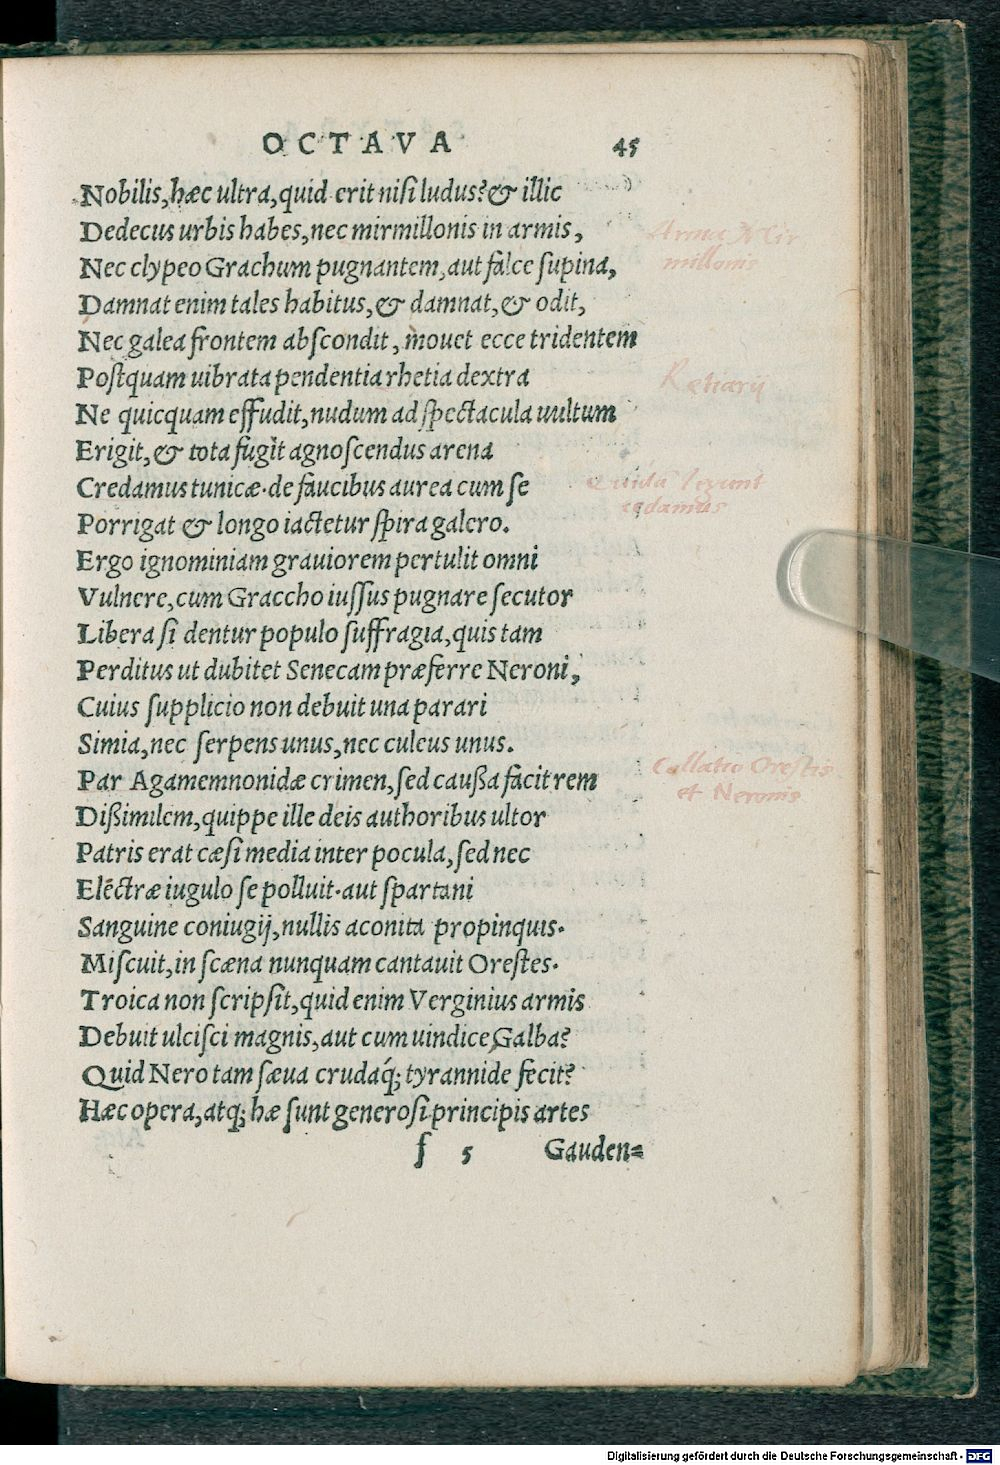 OCTAVA 45
Nobilis, hæc ultra, quid erit nisi ludus? & illic
Dedecus urbis habes, nec mirmillonis in armis,
Arma Mir
millonis
Nec clypeo Grachum pugnantem, aut falce supina,
Damnat enim tales habitus, & damnat, & odit,
Nec galea frontem abscondit, mouet ecce tridentem
Postquam uibrata pendentia rhetia dextra
Retiarij
Ne quicquam effudit, nudum ad spectacula uultum
Erigit, & tota fugit agnoscendus arena
Credamus tunicæ. de faucibus aurea cum se
Quidã legunt
cedamus
Porrigat & longo iactetur spira galero.
Ergo ignominiam grauiorem pertulit omni
Vulnere, cum Graccho iussus pugnare secutor
Libera si dentur populo suffragia, quis tam
Perditus ut dubitet Senecam præferre Neroni,
Cuius supplicio non debuit una parari
Simia, nec serpens unus, nec culeus unus.
Par Agamemnonidæ crimen, sed caußa facit rem
Collatio Orestis
et Neronis
Dißimilem, quippe ille deis authoribus ultor
Patris erat cæsi media inter pocula, sed nec
Elẽctræ iugulo se polluit. aut spartani
Sanguine coniugij, nullis aconita propinquis.
Miscuit, in scæna nunquam cantauit Orestes.
Troica non scripsit, quid enim Verginius armis
Debuit ulcisci magnis, aut cum uindice Galba?
Quid Nero tam sæua crudaq́; tyrannide fecit?
Hæc opera, atq; hæ sunt generosi principis artes
f 5 Gauden=
Digitalisierung gefördert durch die Deutsche Forschungsgemeinschaft - DFG